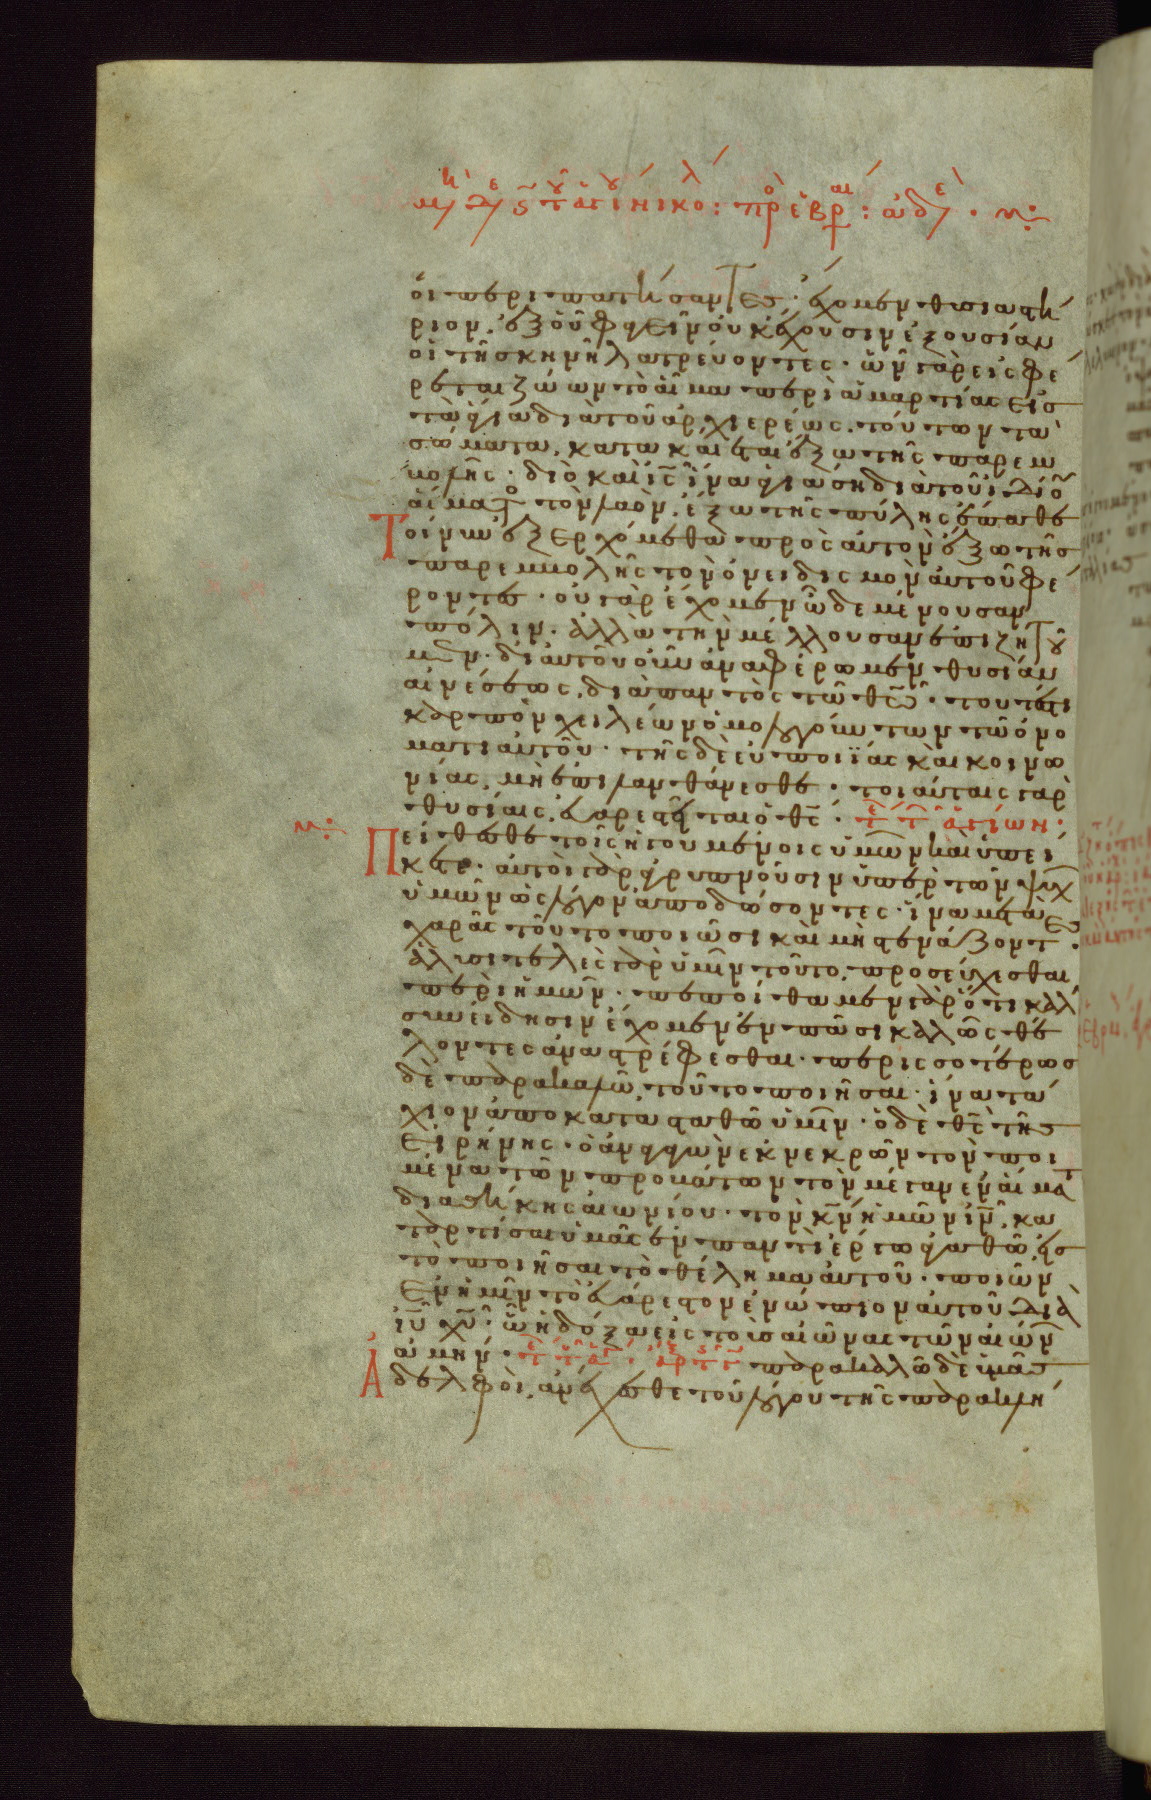 οἱ περιπατήσαντες· ἔχομεν θυσιαστή
ριον, ἐξ οὗ φαγεῖν οὐκ ἔχουσιν ἐξουσίαν
οἱ τῆ σκηνῆ λατρεύοντες· ὧν γὰρ εἰσφέ
ρεται ζώων τὸ αἷμα περὶ ἁμαρτίας εἰς
τὰ ἅγια διὰ τοῦ ἀρχιερέως, τούτων τὰ
σώματα κατακαίεται ἔξω τῆς παρεμ
βολῆς· διὸ καὶ ις ἵνα ἁγιάση διὰ τοῦ ἰδίου
αἵματος τὸν λαὸν, ἔξω τῆς πύλης ἔπαθε
Τοίνυν ἐξερχώμεθα πρὸς αὐτὸν ἔξω τῆς
παρεμβολῆς τὸν ὀνειδισμὸν αὐτοῦ φέ
ροντες· οὐ γὰρ ἔχομεν ὧδε μένουσαν
πόλιν· ἀλλὰ τὴν μέλλουσαν ἐπιζητοῦ
μεν· δι αὐτοῦ οὖν ἀναφέρωμεν θυσίαν
αἰνέσεως, διὰ παντὸς τῶ θω· τουτέστι
καρπὸν χειλέων ὁμολογούντων τῶ ὀνό
ματι αὐτοῦ· τῆς δὲ εὐποιΐας καὶ κοινω
νίας, μὴ ἐπιλανθάνεσθε· τοιαύταις γὰρ
θυσίαις, εὐαρεστεῖται ὁ θς·
Πείθεσθε τοῖς ἡγουμένοις ὑμῶν καὶ ὑπεί
κετε· αὐτοὶ γὰρ ἀγρυπνοῦσιν ὑπὲρ τῶν ψυχ
ὑμῶν ὡς λόγον ἀποδώσοντες· ἵνα μετὰ
χαρᾶς τοῦτο ποιῶσι καὶ μὴ στενάζοντες·
ἀλυσιτελὲς γὰρ ὑμῖν τοῦτο, προσεύχεσθαι
περὶ ἡμῶν· πεποίθαμεν γὰρ ὅτι καλ
συνείδησιν ἔχομεν ἐν πᾶσι καλῶς θέ
λοντες ἀναστρέφεσθαι· περισσοτέρως
δὲ παρακαλῶ, τοῦτο ποιῆσαι· ἵνα τά
χιον ἀποκατασταθῶ ὑμῖν· ὁ δὲ θς τῆς
εἰρήνης· ὁ ἀναγαγὼν ἐκ νεκρῶν τὸν ποι
μένα τῶν προβάτων τὸν μέγαν ἐν αἵματι
διαθήκης αἰωνίου· τὸν κν ἡμῶν ιν, κα
ταρτίσαι ὑμᾶς ἐν παντὶ ἔργω ἀγαθῶ, εἰς
τὸ ποιῆσαι τὸ θέλημα αὐτοῦ· ποιῶν
ἐν ἡμῖν τὸ εὐάρεστον ἐνώπιον αὐτοῦ διὰ
ιυ χυ· ὧ ἡ δόξα εἰς τοὺς αἰῶνας τῶν αἰών
ἀμήν· παρακαλῶ δὲ ὑμᾶς
Ἀδελφοὶ, ἀνέχεσθε τοῦ λόγου τῆς παρακλή